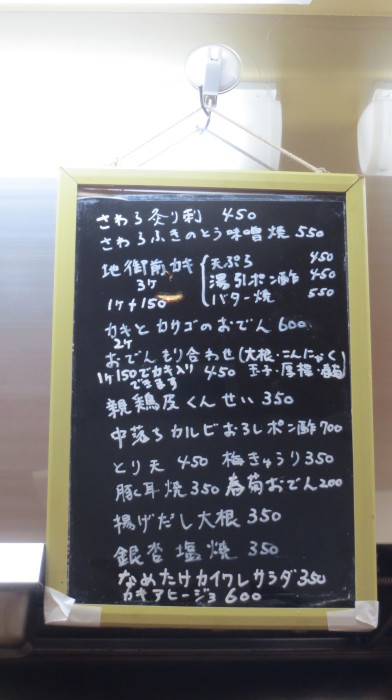 さわら炙り刺 450
さわらふきのとう味噌焼 550
地御前カキ 天ぷら 450
3ケ 湯引ポン酢 450
1ケ+150 バター焼 550
カキとカサゴのおでん 600
2ケ
おでんもり合わせ(大根・こんにゃく
1ケ150でカキ入り 450 玉子・厚揚・春菊)
できます
親鶏皮くんせい 350
中落ちカルビおろしポン酢 700
とり天 450 梅きゅうり 350
豚耳焼 350 春菊おでん 200
揚げだし大根 350
銀杏塩焼 350
なめたけカイワレサラダ 350
カキアヒージョ 600